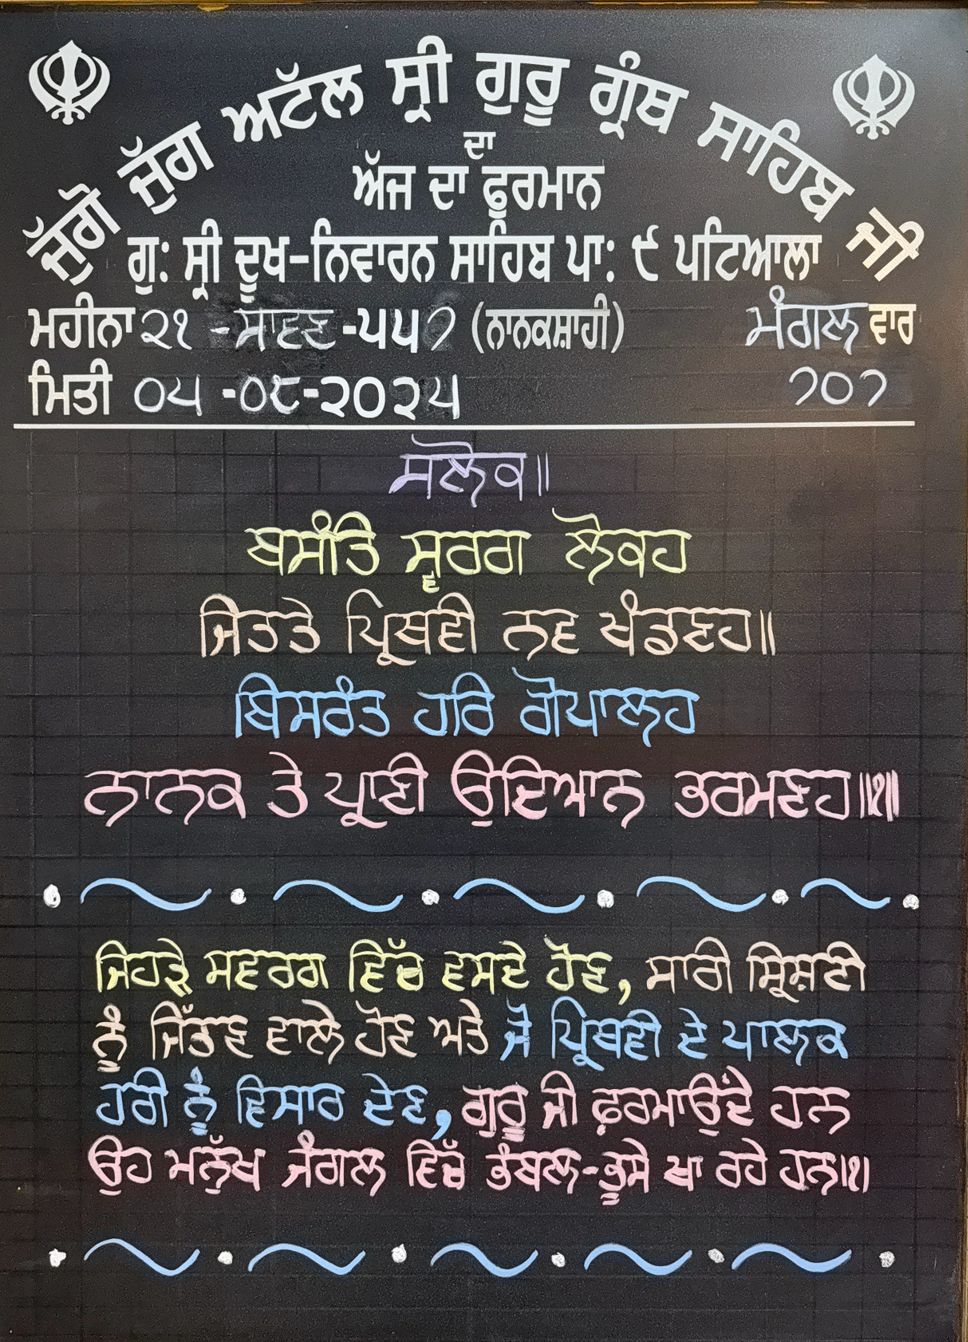 ਜੁੱਗੋ ਜੁੱਗ ਅਟੱਲ ਸ੍ਰੀ ਗੁਰੂ ਗ੍ਰੰਥ ਸਾਹਿਬ ਜੀ
ਦਾ
ਅੱਜ ਦਾ ਫੂਰਮਾਨ
ਗੁ: ਸ੍ਰੀ ਦੂਖ-ਨਿਵਾਰਨ ਸਾਹਿਬ ਪਾ: ੯ ਪਟਿਆਲਾ
ਮਹੀਨਾ ੨੧ -ਸਾਵਣ -੫੫੭ (ਨਾਨਕਸ਼ਾਹੀ) ਮੰਗਲ ਵਾਰ
ਮਿਤੀ ੦੫ -੦੮-੨੦੨੫ ੭੦੭
ਸਲੋਕ॥
ਬਸੰਤਿ ਸ੍ਵਰਗ ਲੋਕਹ
ਜਿਤਤੇ ਪ੍ਰਿਥਵੀ ਨਵ ਖੰਡਣਹ॥
ਬਿਸਰੰਤ ਹਰਿ ਗੋਪਾਲਹ
ਨਾਨਕ ਤੇ ਪ੍ਰਾਣੀ ਉਦਿਆਨ ਭਰਮਣਹ॥੧॥
ਜਿਹੜੇ ਸਵਰਗ ਵਿੱਚ ਵਸਦੇ ਹੋਣ, ਸਾਰੀ ਸ੍ਰਿਸ਼ਟੀ
ਨੂੰ ਜਿੱਤਣ ਵਾਲੇ ਹੋਣ ਅਤੇ ਜੋ ਪ੍ਰਿਥਵੀ ਦੇ ਪਾਲਕ
ਹਰੀ ਨੂੰ ਵਿਸਾਰ ਦੇਣ, ਗੁਰੂ ਜੀ ਫ਼ਰਮਾਉਂਦੇ ਹਨ
ਉਹ ਮਨੁੱਖ ਜੰਗਲ ਵਿੱਚ ਭੰਬਲ-ਭੂਸੇ ਖਾ ਰਹੇ ਹਨ॥੧॥